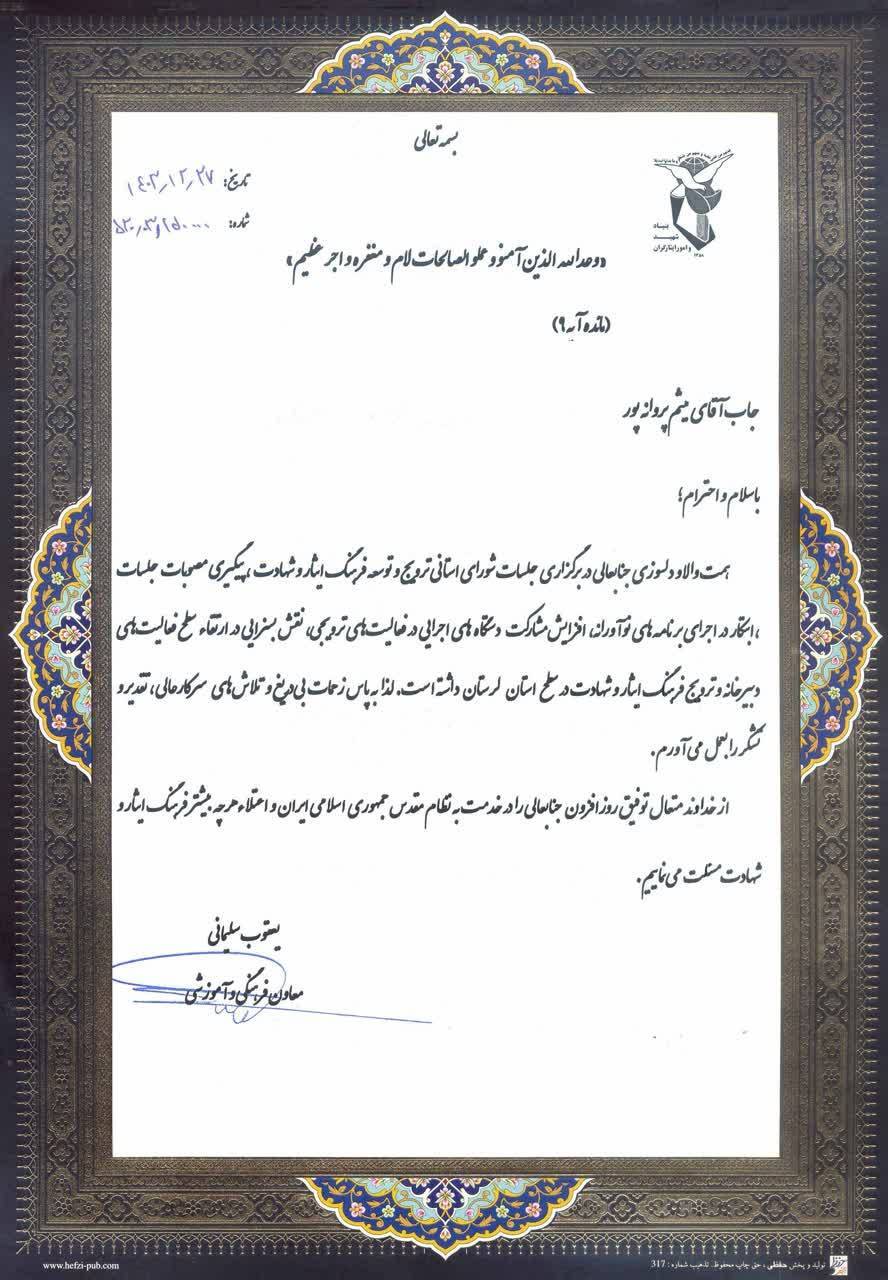 بسمه تعالی
تاریخ: ۱۴۰۳/۱۲/۲۷
شماره:
بنیاد
شهید
و امور ایثارگران
«وعد الله الذین آمنو و عملو الصالحات لام و مغفره و اجر عظیم»
(مائده آیه ۹)
جناب آقای میثم پروانه پور
با سلام و احترام؛
همت والا و دلسوزی جنابعالی در برگزاری جلسات شورای استانی ترویج و توسعه فرهنگ ایثار و شهادت ، پیگیری مصوبات جلسات
، ابتکار در اجرای برنامه های نوآورانه، افزایش مشارکت دستگاه های اجرایی در فعالیت‌های ترویجی، نقش بسزایی در ارتقاء سطح فعالیت‌های
دبیرخانه و ترویج فرهنگ ایثار و شهادت در سطح استان لرستان داشته است. لذا به پاس زحمات بی‌دریغ و تلاش‌های سرکار عالی، تقدیر و
تشکر را بعمل می‌آورم.
از خداوند متعال توفیق روز افزون جنابعالی را در خدمت به نظام مقدس جمهوری اسلامی ایران و اعتلاء هرچه بیشتر فرهنگ ایثار و
شهادت مسئلت می‌نماییم.
یعقوب سلیمانی
معاون فرهنگی و آموزشی
تولید و پخش حفظی ، حق چاپ محفوظ. تذهیب شماره : 317
www.hefzi-pub.com